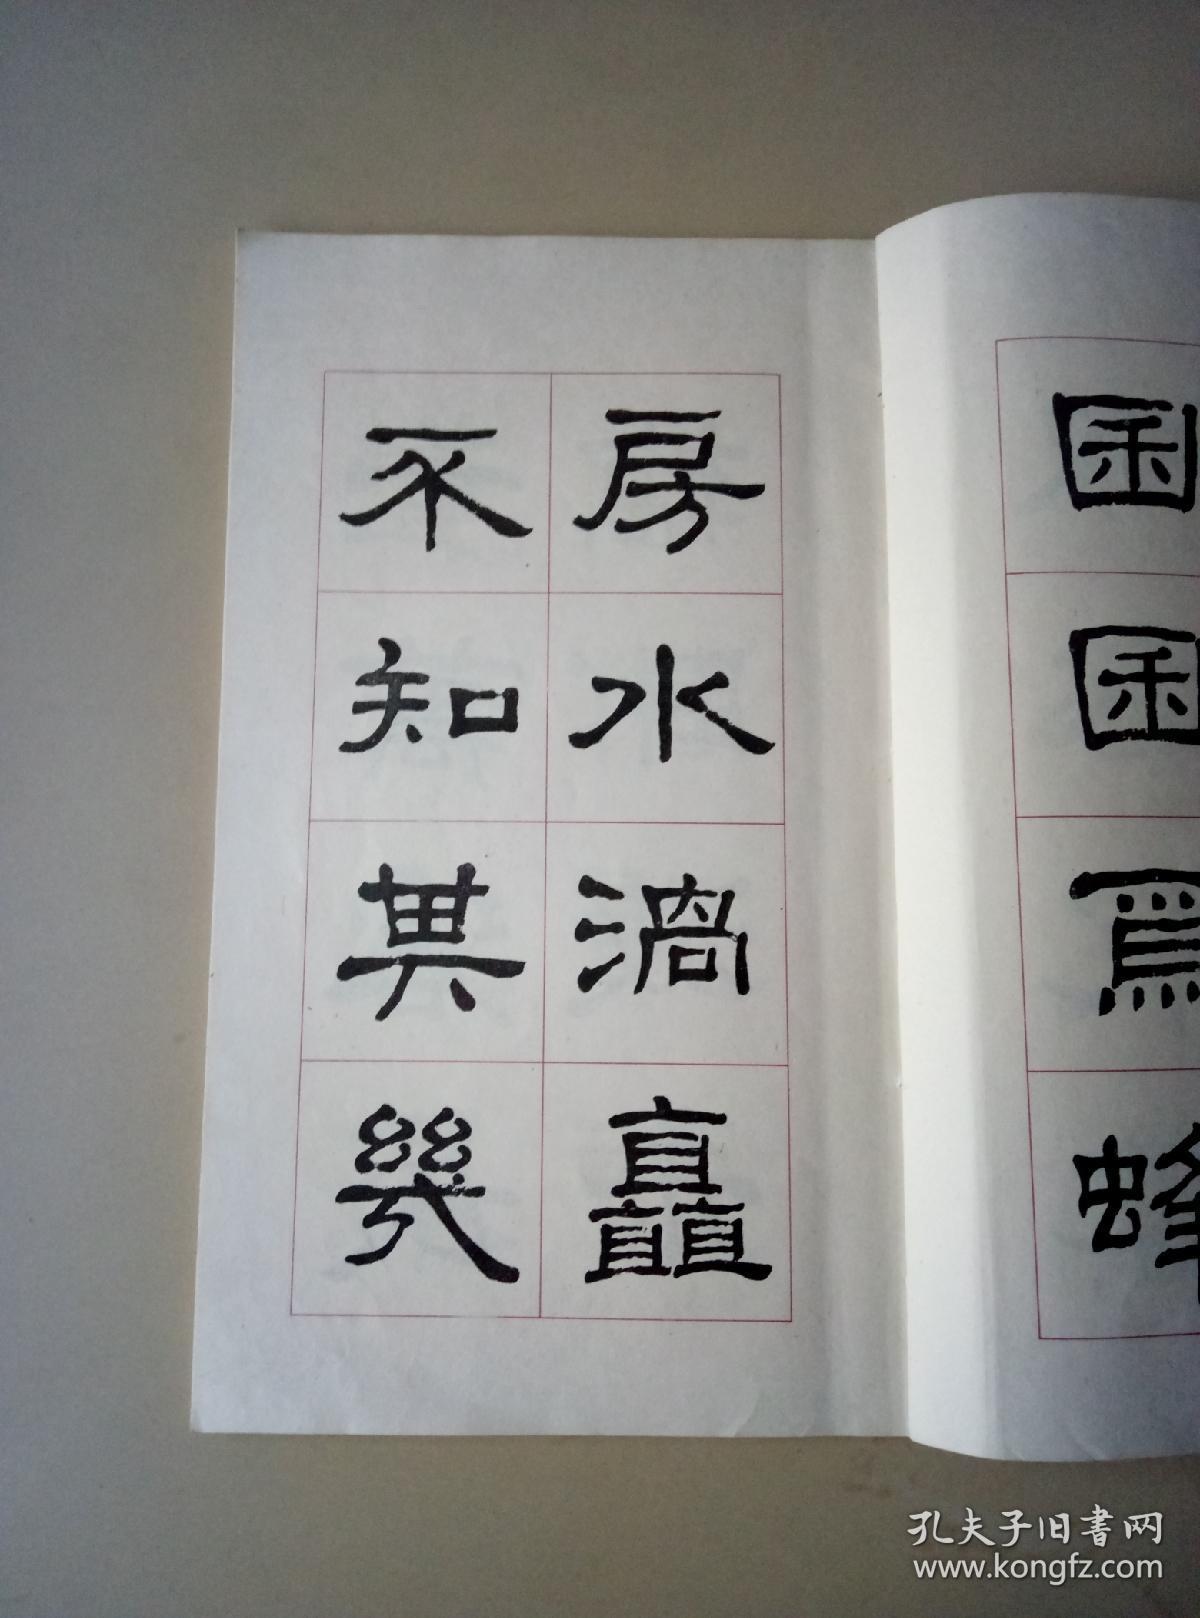 囷囷焉蜂
房水渦矗
不知其幾
孔夫子旧書网
www.kongfz.com